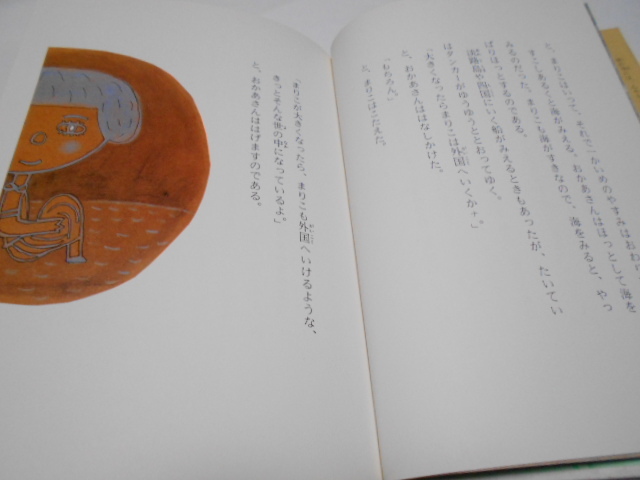 と、まりこはいって、それでにかいめのやすみはおわり。
すこしあると海がみえる。おかあさんはほっとして海を
みるのだった。まりこも海がすきなので、海をみると、やっ
ぱりほっとするのである。
淡路島や四国にいく船がみえるときもあったが、たいてい
はタンカーがゆうゆうととおってゆく。
「大きくなったらまりこは外国へいくか？」
と、おかあさんははなしかけた。
「むろん。」
と、まりこはこたえた。
「まりこが大きくなったら、まりこも外国へいけるような、
きっとそんな世の中になっているよ」
と、おかあさんははげますのである。